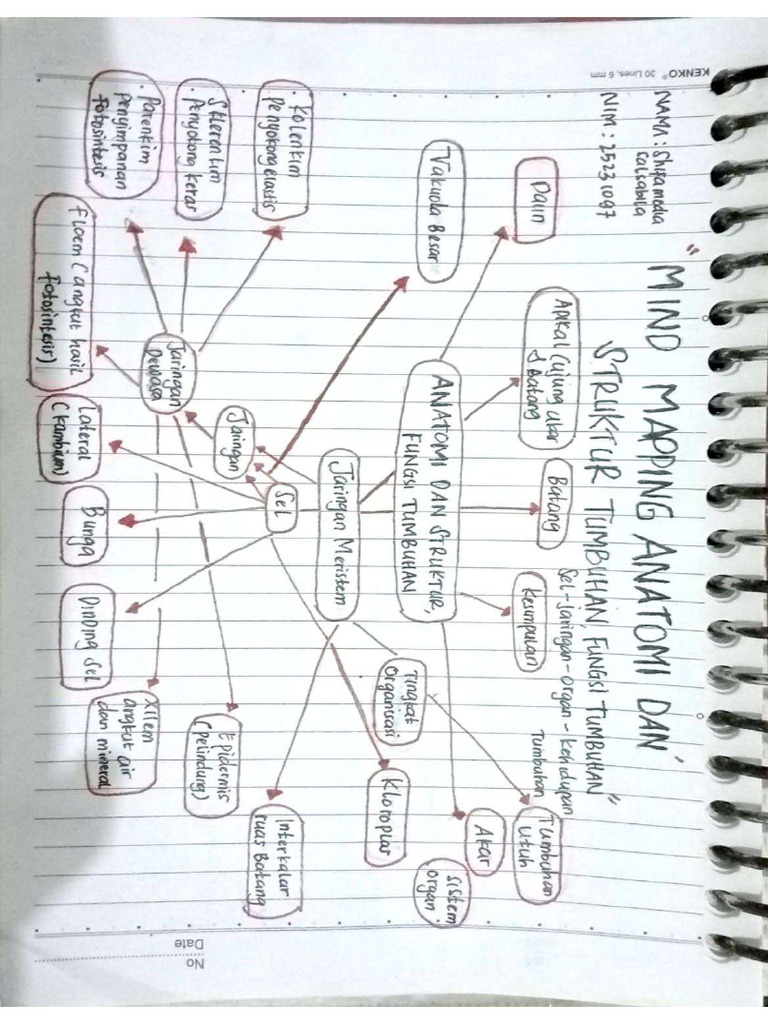 KENKO® 30 Lines, 6 mm
NAMA : Shifa media
Salsabilla
NIM : 25231097
" MIND MAPPING ANATOMI DAN
STRUKTUR TUMBUHAN, FUNGSI TUMBUHAN "
Sel - Jaringan - Organ - Kehidupan
Tumbuhan
Daun
Apikal (ujung akar
& Batang
Batang
Kesimpulan
Tumbuhan
utuh
Akar
Sistem
organ
Vakuola Besar
ANATOMI DAN STRUKTUR,
FUNGSI TUMBUHAN
Tingkat
Organisasi
Kloroplas
Jaringan Meristem
Sel
Jaringan
Interkalar
ruas Batang
• Kolenkim
Penyokong elastis
Sklerenkim
• Penyokong keras
• Parenkim
penyimpanan
fotosintesis
Jaringan
Dewasa
Epidermis
(pelindung)
Floem (angkut hasil
fotosintesis)
Lateral
(kambium)
Bunga
Dinding sel
Xilem
angkut air
dan mineral
No
Date